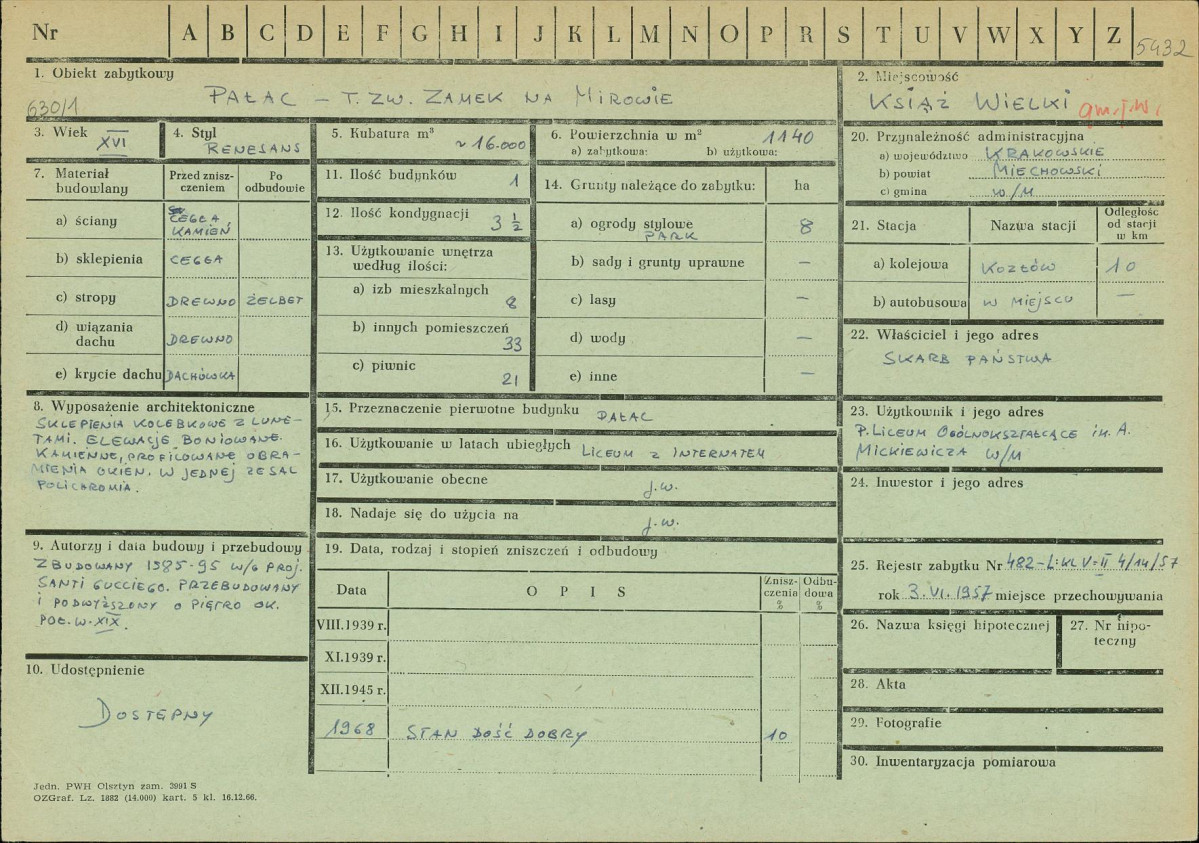 Nr A B C D E F G H I J K L M N O P R S T U V W X Y Z 5432
1. Obiekt zabytkowy
630/1 PAŁAC – T. ZW. ZAMEK NA MIROWIE
2. Miejscowość
KSIĄŻ WIELKI gm. j.w.
3. Wiek
XVI
4. Styl
RENESANS
5. Kubatura m³
~ 16.000
6. Powierzchnia w m² 1140
a) zabytkowa: b) użytkowa:
7. Materiał budowlany
Przed zniszczeniem
Po odbudowie
a) ściany CEGŁA, KAMIEŃ
b) sklepienia CEGŁA
c) stropy DREWNO ŻELBET
d) wiązania dachu DREWNO
e) krycie dachu DACHÓWKA
8. Wyposażenie architektoniczne
SKLEPIENIA KOLEBKOWE Z LUNE-
TAMI. ELEWACJE BONIOWANE.
KAMIENNE, PROFILOWANE OBRA-
MIENIA OKIEN. W JEDNEJ ZE SAL
POLICHROMIA.
9. Autorzy i data budowy i przebudowy
ZBUDOWANY 1585-95 W/G PROJ.
SANTI GUCCIEGO. PRZEBUDOWANY
I PODWYŻSZONY O PIĘTRO OK.
POŁ. W. XIX.
10. Udostępnienie
DOSTĘPNY
11. Ilość budynków 1
12. Ilość kondygnacji 3 ½
13. Użytkowanie wnętrza
według ilości:
a) izb mieszkalnych 8
b) innych pomieszczeń 33
c) piwnic 21
14. Grunty należące do zabytku: ha
a) ogrody stylowe 8
PARK
b) sady i grunty uprawne –
c) lasy –
d) wody –
e) inne –
15. Przeznaczenie pierwotne budynku PAŁAC
16. Użytkowanie w latach ubiegłych LICEUM Z INTERNATEM
17. Użytkowanie obecne j.w.
18. Nadaje się do użycia na j.w.
19. Data, rodzaj i stopień zniszczeń i odbudowy
Data OPIS Zniszczenia % Odbudowa %
VIII.1939 r.
XI.1939 r.
XII.1945 r.
1968 STAN DOŚĆ DOBRY 10
20. Przynależność administracyjna
a) województwo KRAKOWSKIE
b) powiat MIECHOWSKI
c) gmina w/M
21. Stacja Nazwa stacji Odległość od stacji w km
a) kolejowa KOZŁÓW 10
b) autobusowa W MIEJSCU –
22. Właściciel i jego adres
SKARB PAŃSTWA
23. Użytkownik i jego adres
P. LICEUM OGÓLNOKSZTAŁCĄCE IM. A.
MICKIEWICZA W/M
24. Inwestor i jego adres
25. Rejestr zabytku Nr 482-L:KL V-II 4/14/57
rok 3.VI.1957 miejsce przechowywania
26. Nazwa księgi hipotecznej
27. Nr hipo-
teczny
28. Akta
29. Fotografie
30. Inwentaryzacja pomiarowa
Jedn. PWH Olsztyn zam. 3991 S
OZGraf. Lz. 1882 (14.000) kart. 5 kl. 16.12.66.